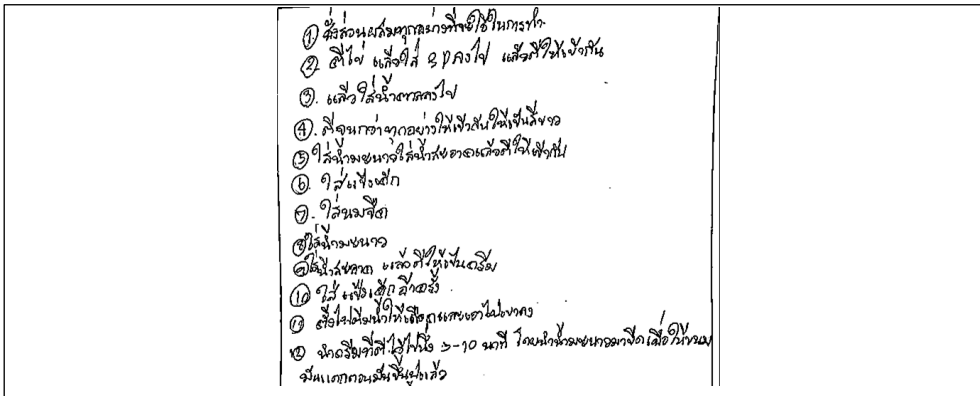 ① ชั่งส่วนผสมทุกอย่างที่จะใช้ในการทำ
②. ตีไข่ แล้วใส่ SP ลงไป แล้วตีให้เข้ากัน
③. แล้วใส่น้ำตาลลงไป
④. ตีจนกว่าทุกอย่างให้เข้ากันให้เป็นสีขาว
⑤ ใส่น้ำมะนาวใส่น้ำสะอาดแล้วตีให้เข้ากัน
⑥. ใส่แป้งเค้ก
⑦. ใส่นมจืด
⑧ ใส่น้ำมะนาว
⑨ ใส่น้ำสะอาด แล้วตีให้เป็นครีม
⑩ ใส่แป้งเค้กอีกครั้ง
⑪ ตั้งไฟต้มน้ำให้เดือด
⑫ นำครีมที่ตีไว้ไปนึ่ง 5-10 นาที โดยนำน้ำมะนาวมาขีดเพื่อให้ขนม
มันแตกตอนมันขึ้นฟูแล้ว